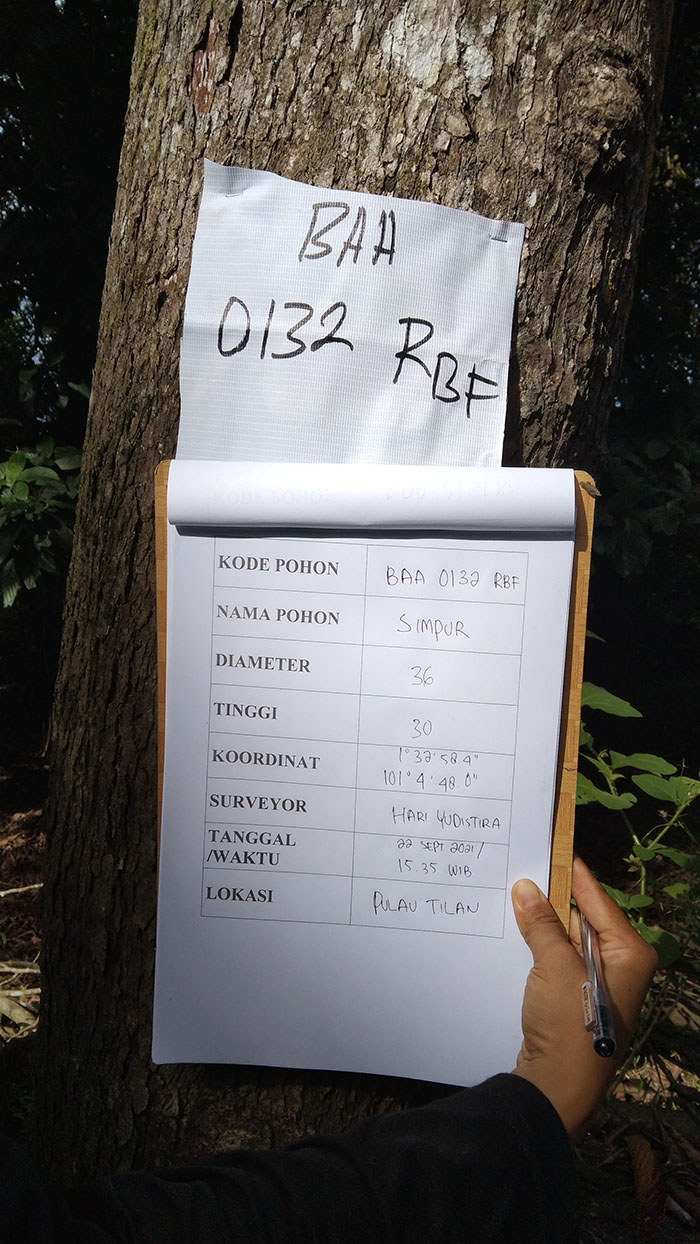 BAA
0132 RBF
KODE POHON BAA 0132 RBF
NAMA POHON SIMPUR
DIAMETER 36
TINGGI 30
KOORDINAT 1°32'58.4"
101°4'48.0"
SURVEYOR HARI YUDISTIRA
TANGGAL 22 SEPT 2021/
/WAKTU 15.35 WIB
LOKASI PULAU TILAN